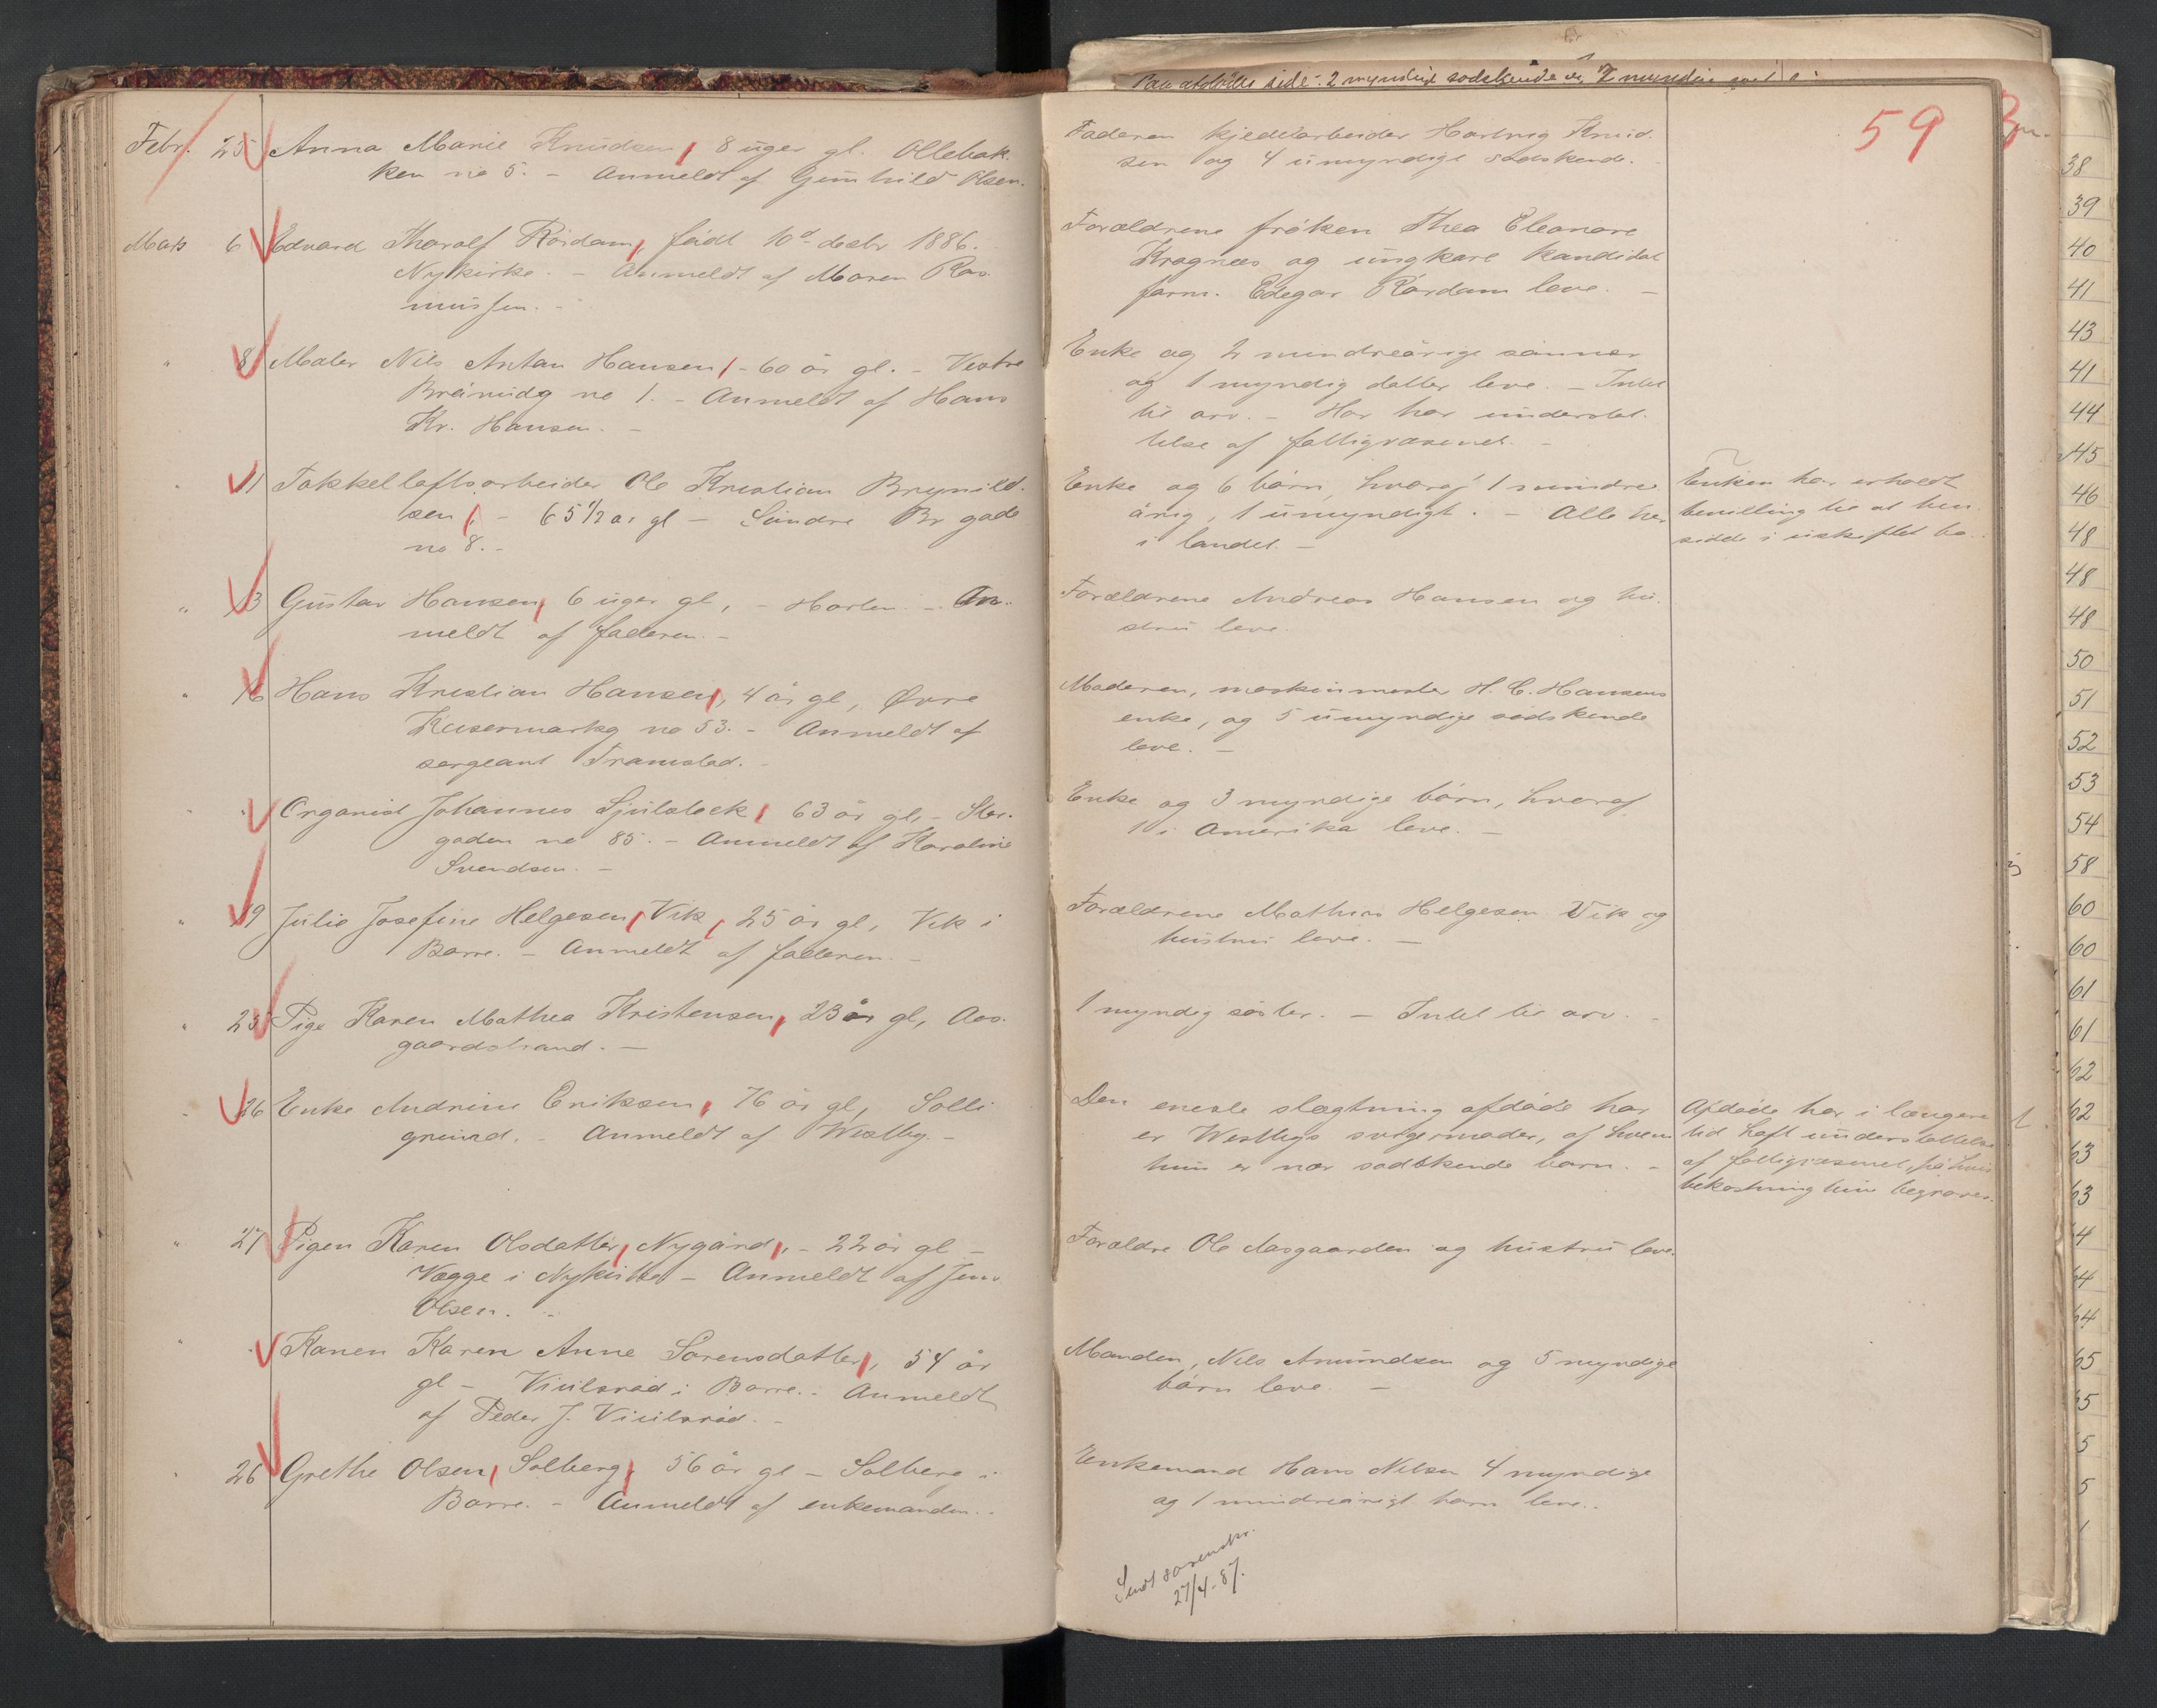 Febr. 25 Anna Marie Knudsen, 8 uger gl. Ollebak-
ken no 5. - Anmeldt af Gunhild Olsen.
Marts 6 Edvard Thoralf Rördam, födt 10d decbr 1886.
Nykirke. - Anmeldt af Maren Ras-
mussen. -
" 8 Maler Nils Anton Hansen - 60 år gl. - Vestre
Brånudg no 1. - Anmeldt af Hans
Kr. Hansen. -
" 11 Takkelloftsarbeider Ole Kristian Brynild-
sen, - 65 1/2 år gl - Söndre Br gade
no 8. -
" 13 Gustav Hansen, 6 uger gl, - Horten. - An-
meldt af faderen. -
" 16 Hans Kristian Hansen, 4 år gl, Øvre
Keisermarkg no 53. - Anmeldt af
sergeant Framstad. -
" Organist Johannes Sjulstock, 63 år gl, - Stor-
gaden no 85. - Anmeldt af Karoline
Svendsen. -
" 19 Julie Josefine Helgesen, Vik, 25 år gl, Vik i
Borre. - Anmeldt af faderen. -
" 25 Pige Karen Mathea Kristensen, 23 år gl, Aas-
gaardstrand. -
" 26 Enke Andrine Eriksen, 76 år gl, Solli
grund. - Anmeldt af Westby. -
" 27 Pigen Karen Olsdatter, Nygård, - 22 år gl -
Vægge i Nykirke - Anmeldt af Jens
Olsen. -
" Konen Karen Anne Sörensdatter, 54 år
gl - Viulsröd i Borre. - Anmeldt
af Peder J. Viulsröd. -
" 26 Grethe Olsen, Solberg, 56 år gl - Solberg i
Borre. - Anmeldt af enkemanden. -
Paa afdödes side: 2 myndige södskende og 2 myndige
59
Faderen kjedelarbeider Hartvig Knud-
sen og 4 umyndige södskende. -
Forældrene fröken Thea Eleonore
Kragnæs og ungkarl kandidat
farm. Edegar Rördam leve. -
Enke og 2 mindreårige sönner
og 1 myndig datter leve. - Intet
til arv. - Har har understöt-
telse af fattigvæsenet. -
Enke og 6 börn, hvoraf 1 mindre-
årig, 1 umyndigt. - Alle her
i landet. -
Enken har erholdt
bevilling til at hen-
sidde i uskiftet bo.
Forældrene Andreas Hansen og hu-
stru leve.
Moderen, maskinmester H. C. Hansens
enke, og 5 umyndige södskende
leve. -
Enke og 3 myndige börn, hvoraf
1 i Amerika leve. -
Forældrene Mathias Helgesen Vik og
hustru leve. -
1 myndig söster. - Intet til arv. -
Den eneste slægtning afdöde har
er Westbys svigermoder, af hvem
hun er nær södskende barn. -
Afdöde har i længere
tid haft understöttelse
af fattigvæsenet, på hvis
bekostning hun begraves.
Forældre Ole Aasgaarden og hustru leve.
Manden, Nils Amundsen og 5 myndige
börn leve. -
Enkemand Hans Nilsen 4 myndige
og 1 mindreårigt barn leve. -
Sendt sorenskr.
27/4-87.
38
39
40
41
43
41
44
45
46
48
48
48
50
51
52
53
54
58
60
60
61
61
62
62
63
63